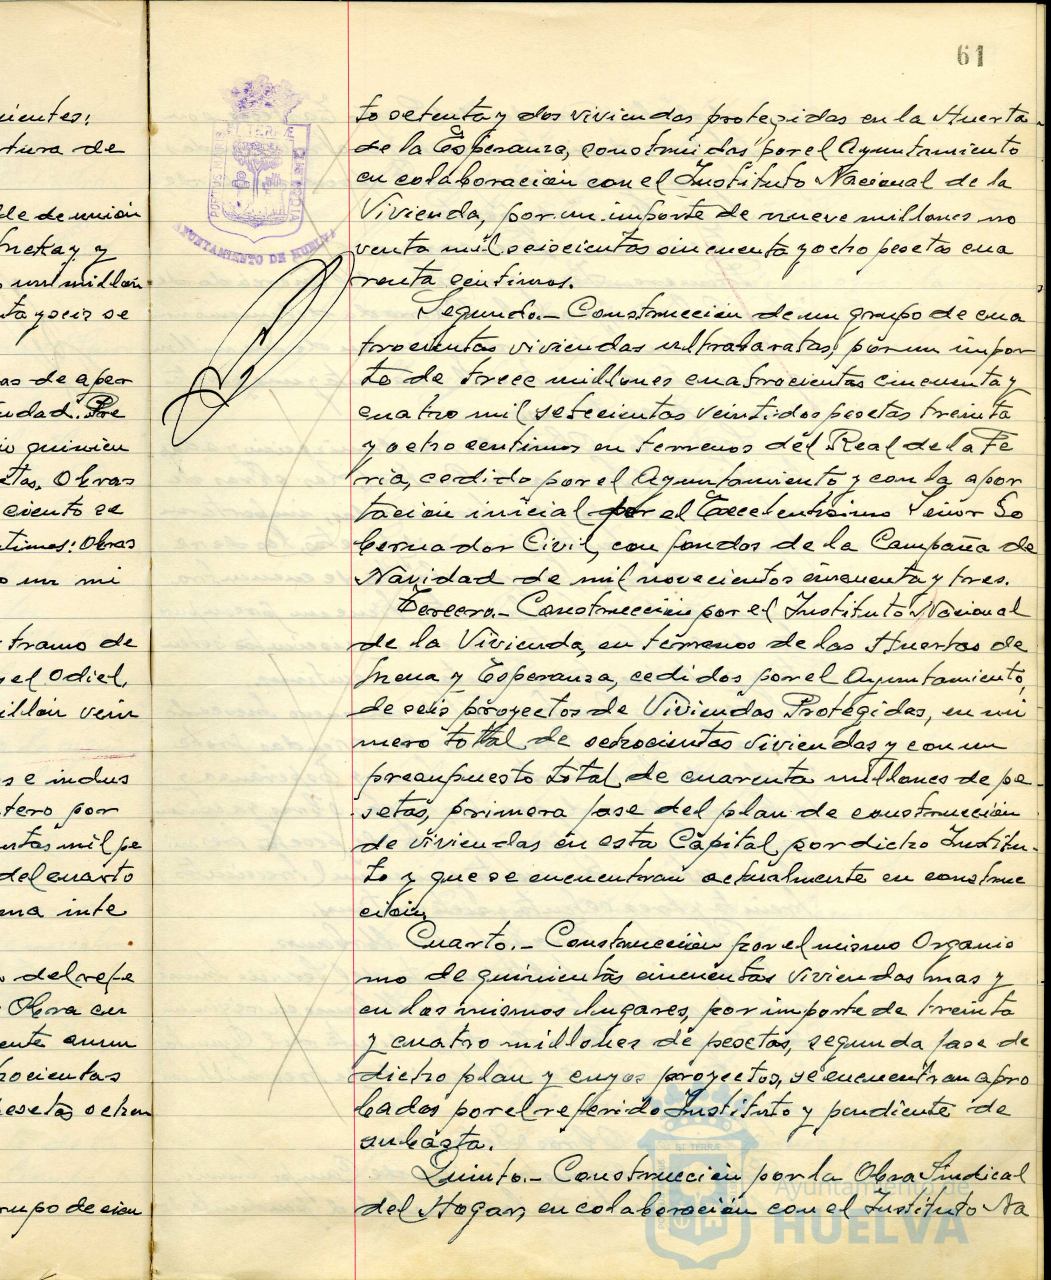 61
nientes:
tura de
lde de unión
y
un millón
nta y seis se
as de aper
udad. Pre
quinien
etas. Obras
ciento se
ntimos: Obras
o un mi
tramo de
y el Odiel,
illón vein
s e indus
tero por
ntas mil pe
del cuarto
ma inte
del refe
Obra en
ente anun
rocientas
pesetas ochen
rupo de cien
PORTUS MARIS ET TERRÆ CUSTODIA
AYUNTAMIENTO DE HUELVA
to setenta y dos viviendas protegidas en la Huerta
de la Esperanza, construidas por el Ayuntamiento
en colaboración con el Instituto Nacional de la
Vivienda, por un importe de nueve millones no
venta mil seiscientas cincuenta y ocho pesetas cua
renta centimos.
Segundo.- Construcción de un grupo de cua
trocientas viviendas ultrabaratas, por un impor
te de trece millones cuatrocientas cincuenta y
cuatro mil setecientas veintidos pesetas treinta
y ocho centimos en terrenos del Real de la Fe
ria, cedido por el Ayuntamiento y con la apor
tación inicial por el Excelentisimo Señor Go
bernador Civil, con fondos de la Campaña de
Navidad de mil novecientos cincuenta y tres.
Tercero.- Construcción por el Instituto Nacional
de la Vivienda, en terrenos de las Huertas de
Mena y Esperanza, cedidos por el Ayuntamiento,
de seis proyectos de Viviendas Protegidas, en nú
mero total de ochocientas viviendas y con un
presupuesto total de cuarenta millones de pe-
setas, primera fase del plan de construcción
de viviendas en esta Capital, por dicho Institu-
to y que se encuentran actualmente en construc
ción.
Cuarto.- Construcción por el mismo Organis
mo de quinientas cincuentas viviendas mas y
en los mismos lugares, por importe de treinta
y cuatro millones de pesetas, segunda fase de
dicho plan y cuyos proyectos, se encuentran apro
bados por el referido Instituto y pendiente de
subasta.
Quinto.- Construcción por la Obra Sindical
del Hogar, en colaboración con el Instituto Na
Ayuntamiento de
HUELVA